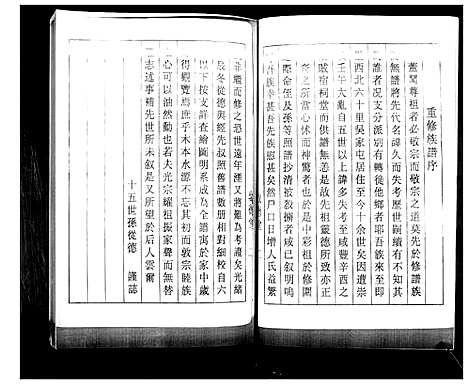 重修族譜序
蓋聞尊祖者必敬宗而敬宗之道莫先於修譜族
無譜將先代名諱久而失考歷世嗣續有不知其
者且況支分派別有轉從他鄉者耶吾族來
西北六十里吳家屯居住至今十餘世矣因遭崇
壬午大亂自五世以上諱多失考至咸豐辛酉之
賊宿祠堂而供譜無恙是以先祖靈德所致亦正
之所當心怵而神驚者也於是中彩祖於修圍
命侄及孫等照譜抄清被毀擄者咸已叙明嗚
吾族幸甚吾先族慰甚矣然戶口日增人氏益繁
繼而修之恐世遠年湮又將難為考證矣光緒
冬從德與經先叔照舊譜數册相對細校自六
以下按支詳查繪圖明系成一全譜寓於家中歲
得觀焉庶乎木本水源不忘於前而敦宗睦族
心可以油然動也若夫光宗耀祖振家聲而無替
志述事補先世所未叙是又所望於后人雲爾
十五世孫從德 謹誌